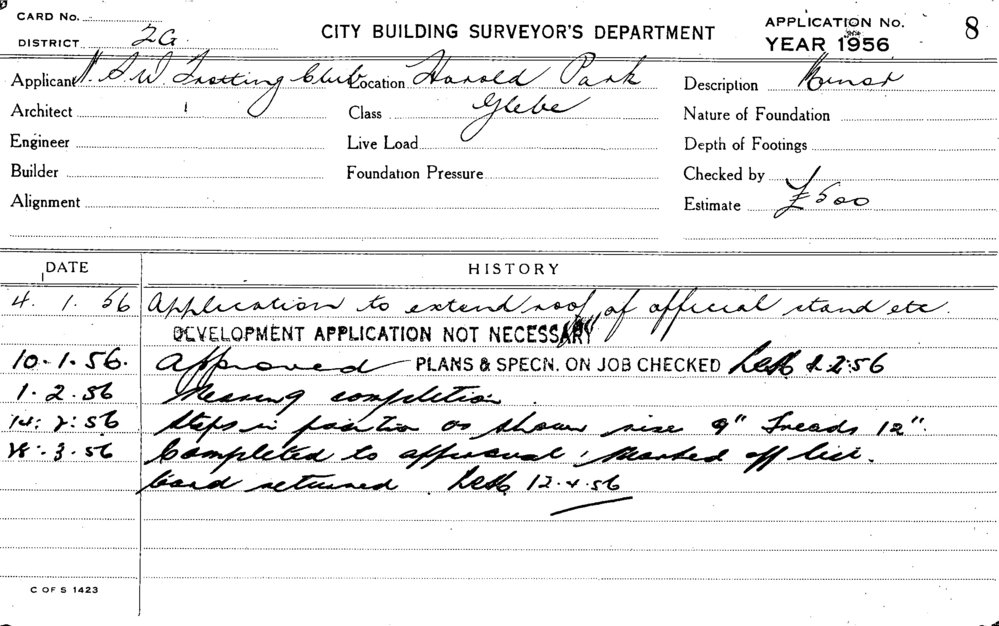 CARD No.
DISTRICT 2G
CITY BUILDING SURVEYOR'S DEPARTMENT
APPLICATION No. 8
YEAR 1956
Applicant N.S.W. Trotting Club Location Harold Park Description Minor
Architect Class Glebe Nature of Foundation
Engineer Live Load Depth of Footings
Builder Foundation Pressure Checked by
Alignment Estimate £500
DATE HISTORY
4. 1. 56 Application to extend roof of official stand etc.
DEVELOPMENT APPLICATION NOT NECESSARY
10-1-56. Approved PLANS & SPECN. ON JOB CHECKED 2:56
1. 2. 56 Nearing completion.
14. 2: 56 Steps in position as shown rise 9" Treads 12".
3. 56 Completed to approval. Marked off list.
Card returned. 12.4.56
C OF S 1423